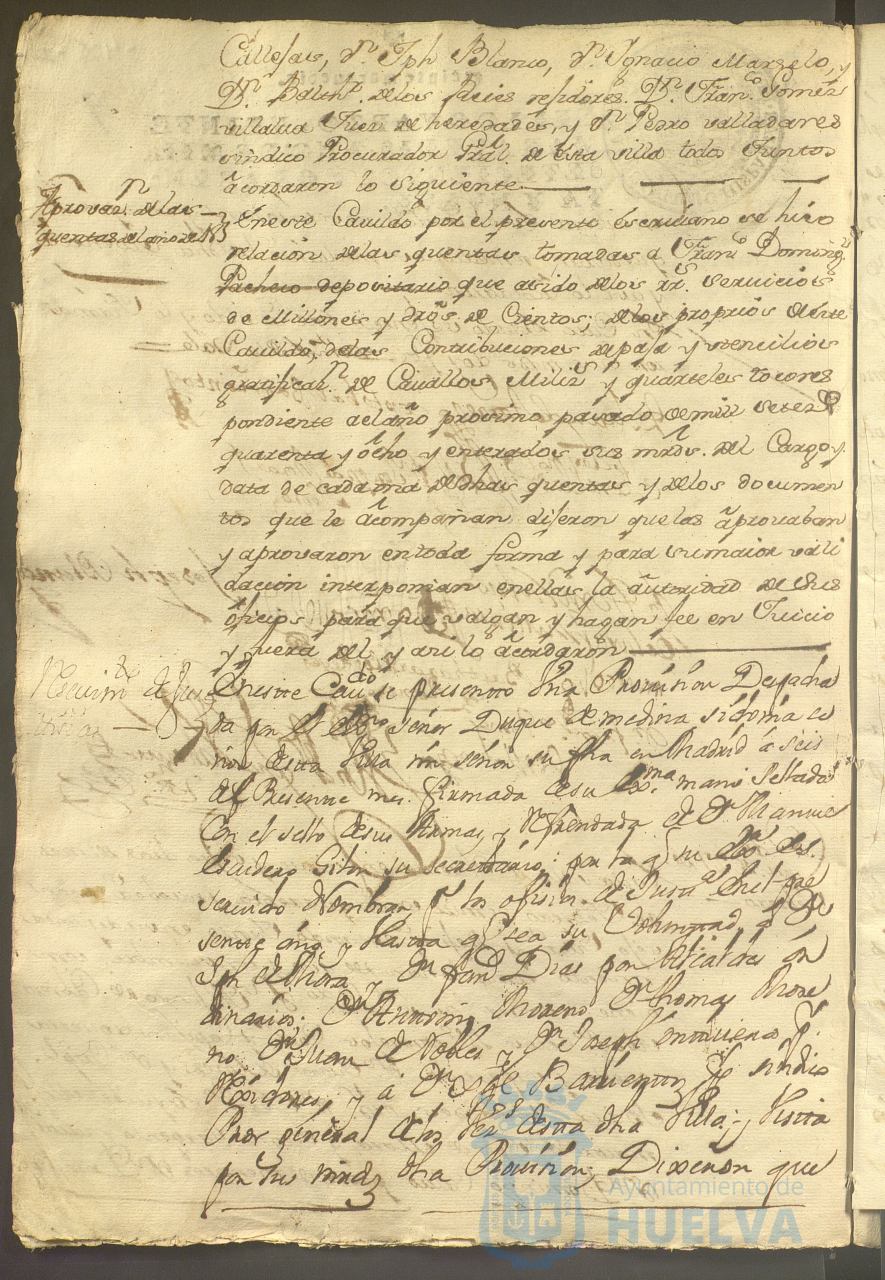 Callejas, Dn. Jph Blanco, Dn. Ygnacio Marzelo, y
Dn. Balthr. de los Reies rexidores. Dn. Franco. Gomez
villalva Juez de heredades, y Dn. Pedro valladares
sindico Procurador Gral. de esta villa todos Juntos
acordaron lo siguiente
Aprovazn. de las
quentas del año de
En este Cavildo por el presente Escrivano se hizo
relazion de las quentas tomadas a Franco. Doming.
Pacheco depositario que asido de los rs. servicios
de Millones y dros. de Cientos, de los proprios de este
Cavildo, de las Contribuciones de paja y utencilios
gratificazn. de Cavallos Milizs. y quarteles to corres
pondiente al año proximo pasado de mill setezs.
quarenta y ocho y enterados sus mrds. del Cargo y
data de cada una de dhas quentas y de los documen
tos que le acompañan dijeron que las aprovaban
y aprovaron en toda forma y para su maior vali
dacion interponian en ellas la autoridad de sus
oficios para que valgan y hagan fee en Juicio
y fuera del y asi lo acordaron
Reseuimto. de Jus
ticias
En este Caudo. se presento Una Provision Despacha
da por el Exmo. señor Duque de medina sidonia
nor de esta Villa mi señor su fha en Madrid a seis
del Presente mes firmada de su Exma. mano Sellada
Con el sello de sus Armas, y Refrendada de Dn. Manuel
Escudero Gilon su secretario; por la q. su Exa. es
seruido Nombrar pr. los ofisios de Justa. En el pre
sente año y Hasta q. sea su Voluntad, a Dn.
Jph de Mora Dn. Fando. Dias por Alcaldes or
dinarios; Dn. Antonio Moreno Dn. thomas More
no Dn. Juan de Nobles y Dn. Joseph pr.
Rexidores, y a Dn. Barrientos pr. sindico
Procr. general de los Vezs. de esta dha Villa; y Vista
por sus mrds dha Provision, Dixeron que
Ayuntamiento de
HUELVA